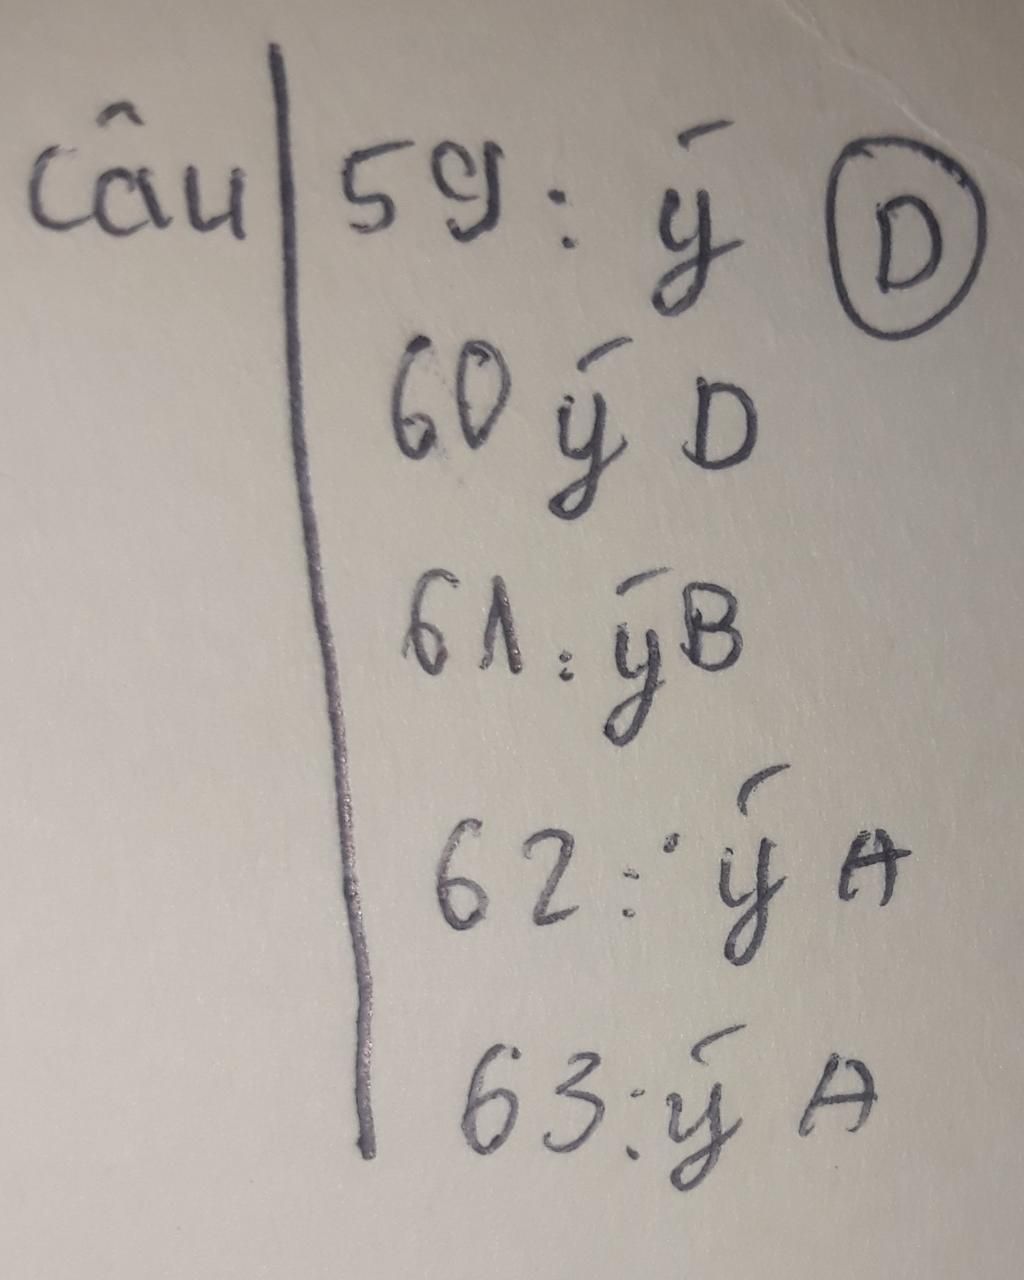 Câu 59: ý D
60 ý D
61: ý B
62: ý A
63: ý A